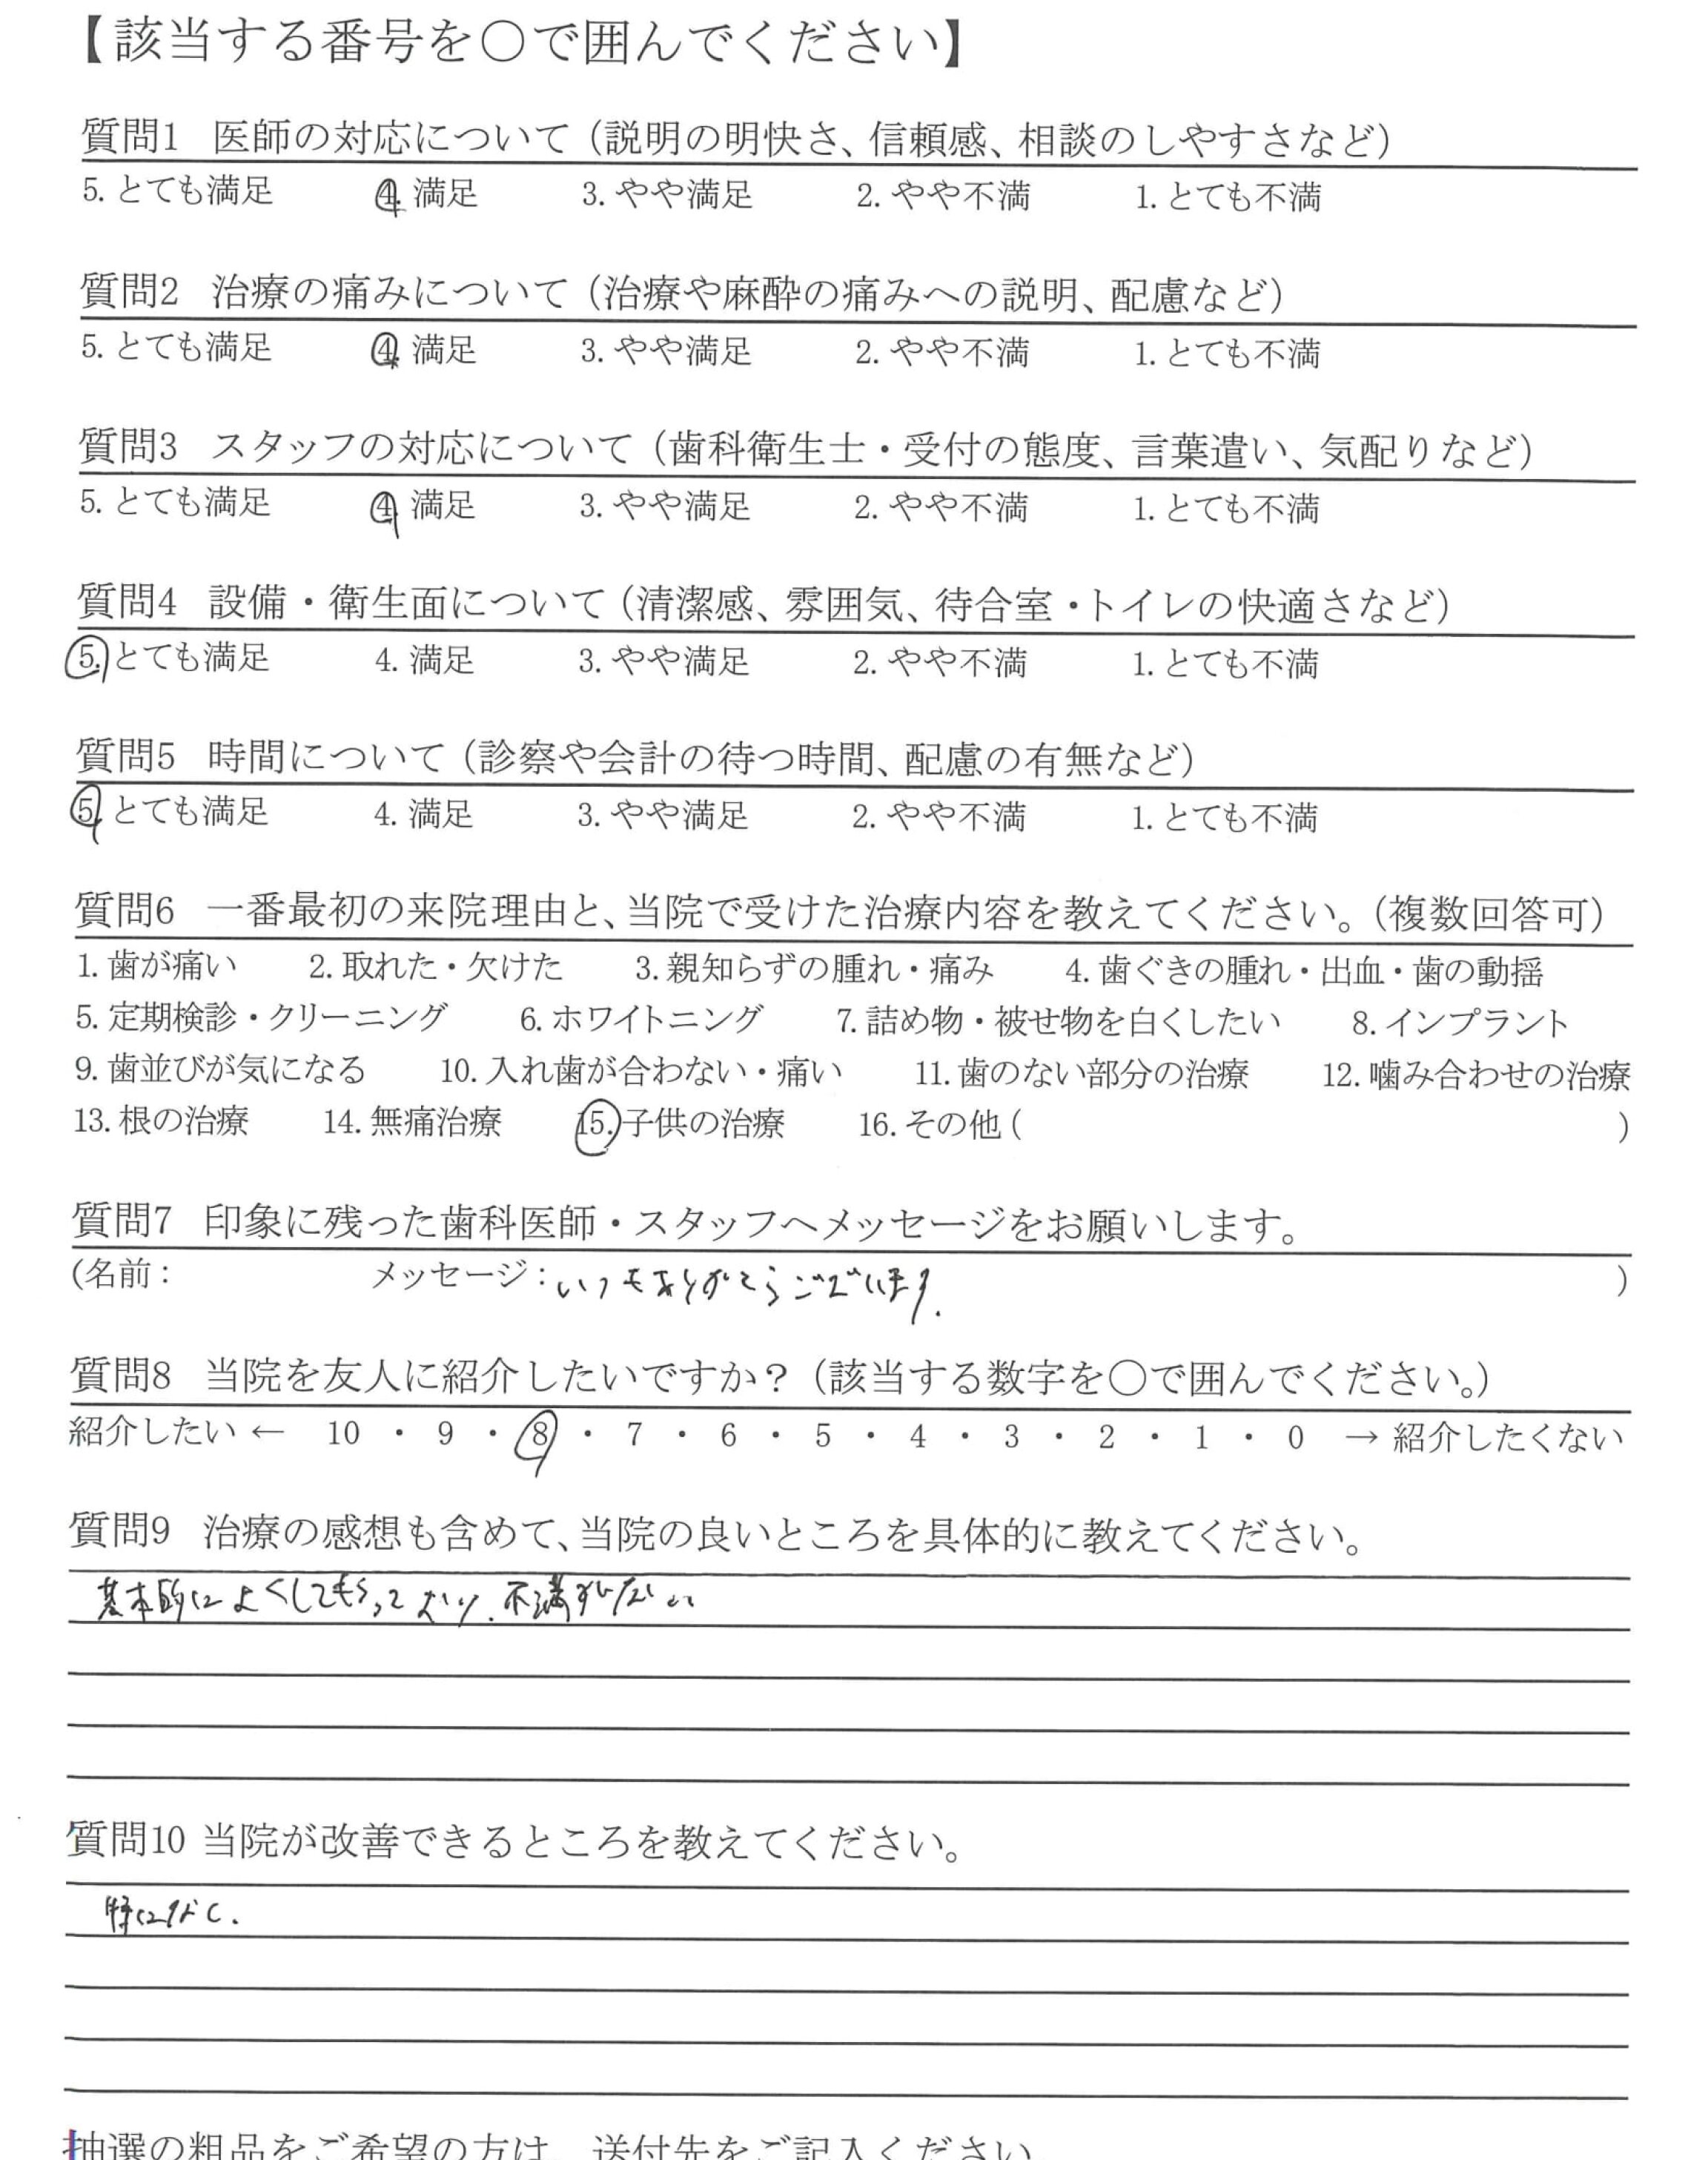 【該当する番号を〇で囲んでください】
質問1 医師の対応について（説明の明快さ、信頼感、相談のしやすさなど）
5. とても満足 4. 満足 3. やや満足 2. やや不満 1. とても不満
質問2 治療の痛みについて（治療や麻酔の痛みへの説明、配慮など）
5. とても満足 4. 満足 3. やや満足 2. やや不満 1. とても不満
質問3 スタッフの対応について（歯科衛生士・受付の態度、言葉遣い、気配りなど）
5. とても満足 4. 満足 3. やや満足 2. やや不満 1. とても不満
質問4 設備・衛生面について（清潔感、雰囲気、待合室・トイレの快適さなど）
5. とても満足 4. 満足 3. やや満足 2. やや不満 1. とても不満
質問5 時間について（診察や会計の待つ時間、配慮の有無など）
5. とても満足 4. 満足 3. やや満足 2. やや不満 1. とても不満
質問6 一番最初の来院理由と、当院で受けた治療内容を教えてください。（複数回答可）
1. 歯が痛い 2. 取れた・欠けた 3. 親知らずの腫れ・痛み 4. 歯ぐきの腫れ・出血・歯の動揺
5. 定期検診・クリーニング 6. ホワイトニング 7. 詰め物・被せ物を白くしたい 8. インプラント
9. 歯並びが気になる 10. 入れ歯が合わない・痛い 11. 歯のない部分の治療 12. 噛み合わせの治療
13. 根の治療 14. 無痛治療 15. 子供の治療 16. その他 ( )
質問7 印象に残った歯科医師・スタッフへメッセージをお願いします。
(名前： メッセージ：いつもありがとうございます. )
質問8 当院を友人に紹介したいですか？（該当する数字を〇で囲んでください。）
紹介したい ← 10 ・ 9 ・ 8 ・ 7 ・ 6 ・ 5 ・ 4 ・ 3 ・ 2 ・ 1 ・ 0 → 紹介したくない
質問9 治療の感想も含めて、当院の良いところを具体的に教えてください。
基本的によくしてもらっており、不満はない
質問10 当院が改善できるところを教えてください。
特になし.
抽選の粗品をご希望の方は、送付先をご記入ください